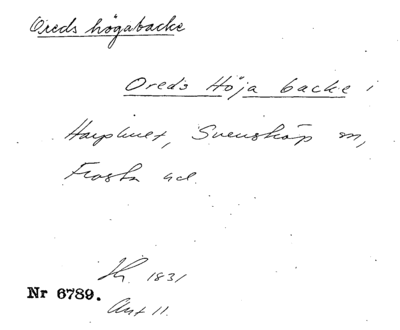 Oreds högabacke
Oreds Höja backe i
Harphult, Svensköp sn,
Frosta hd.
1831
Nr 6789.
Ant 11.